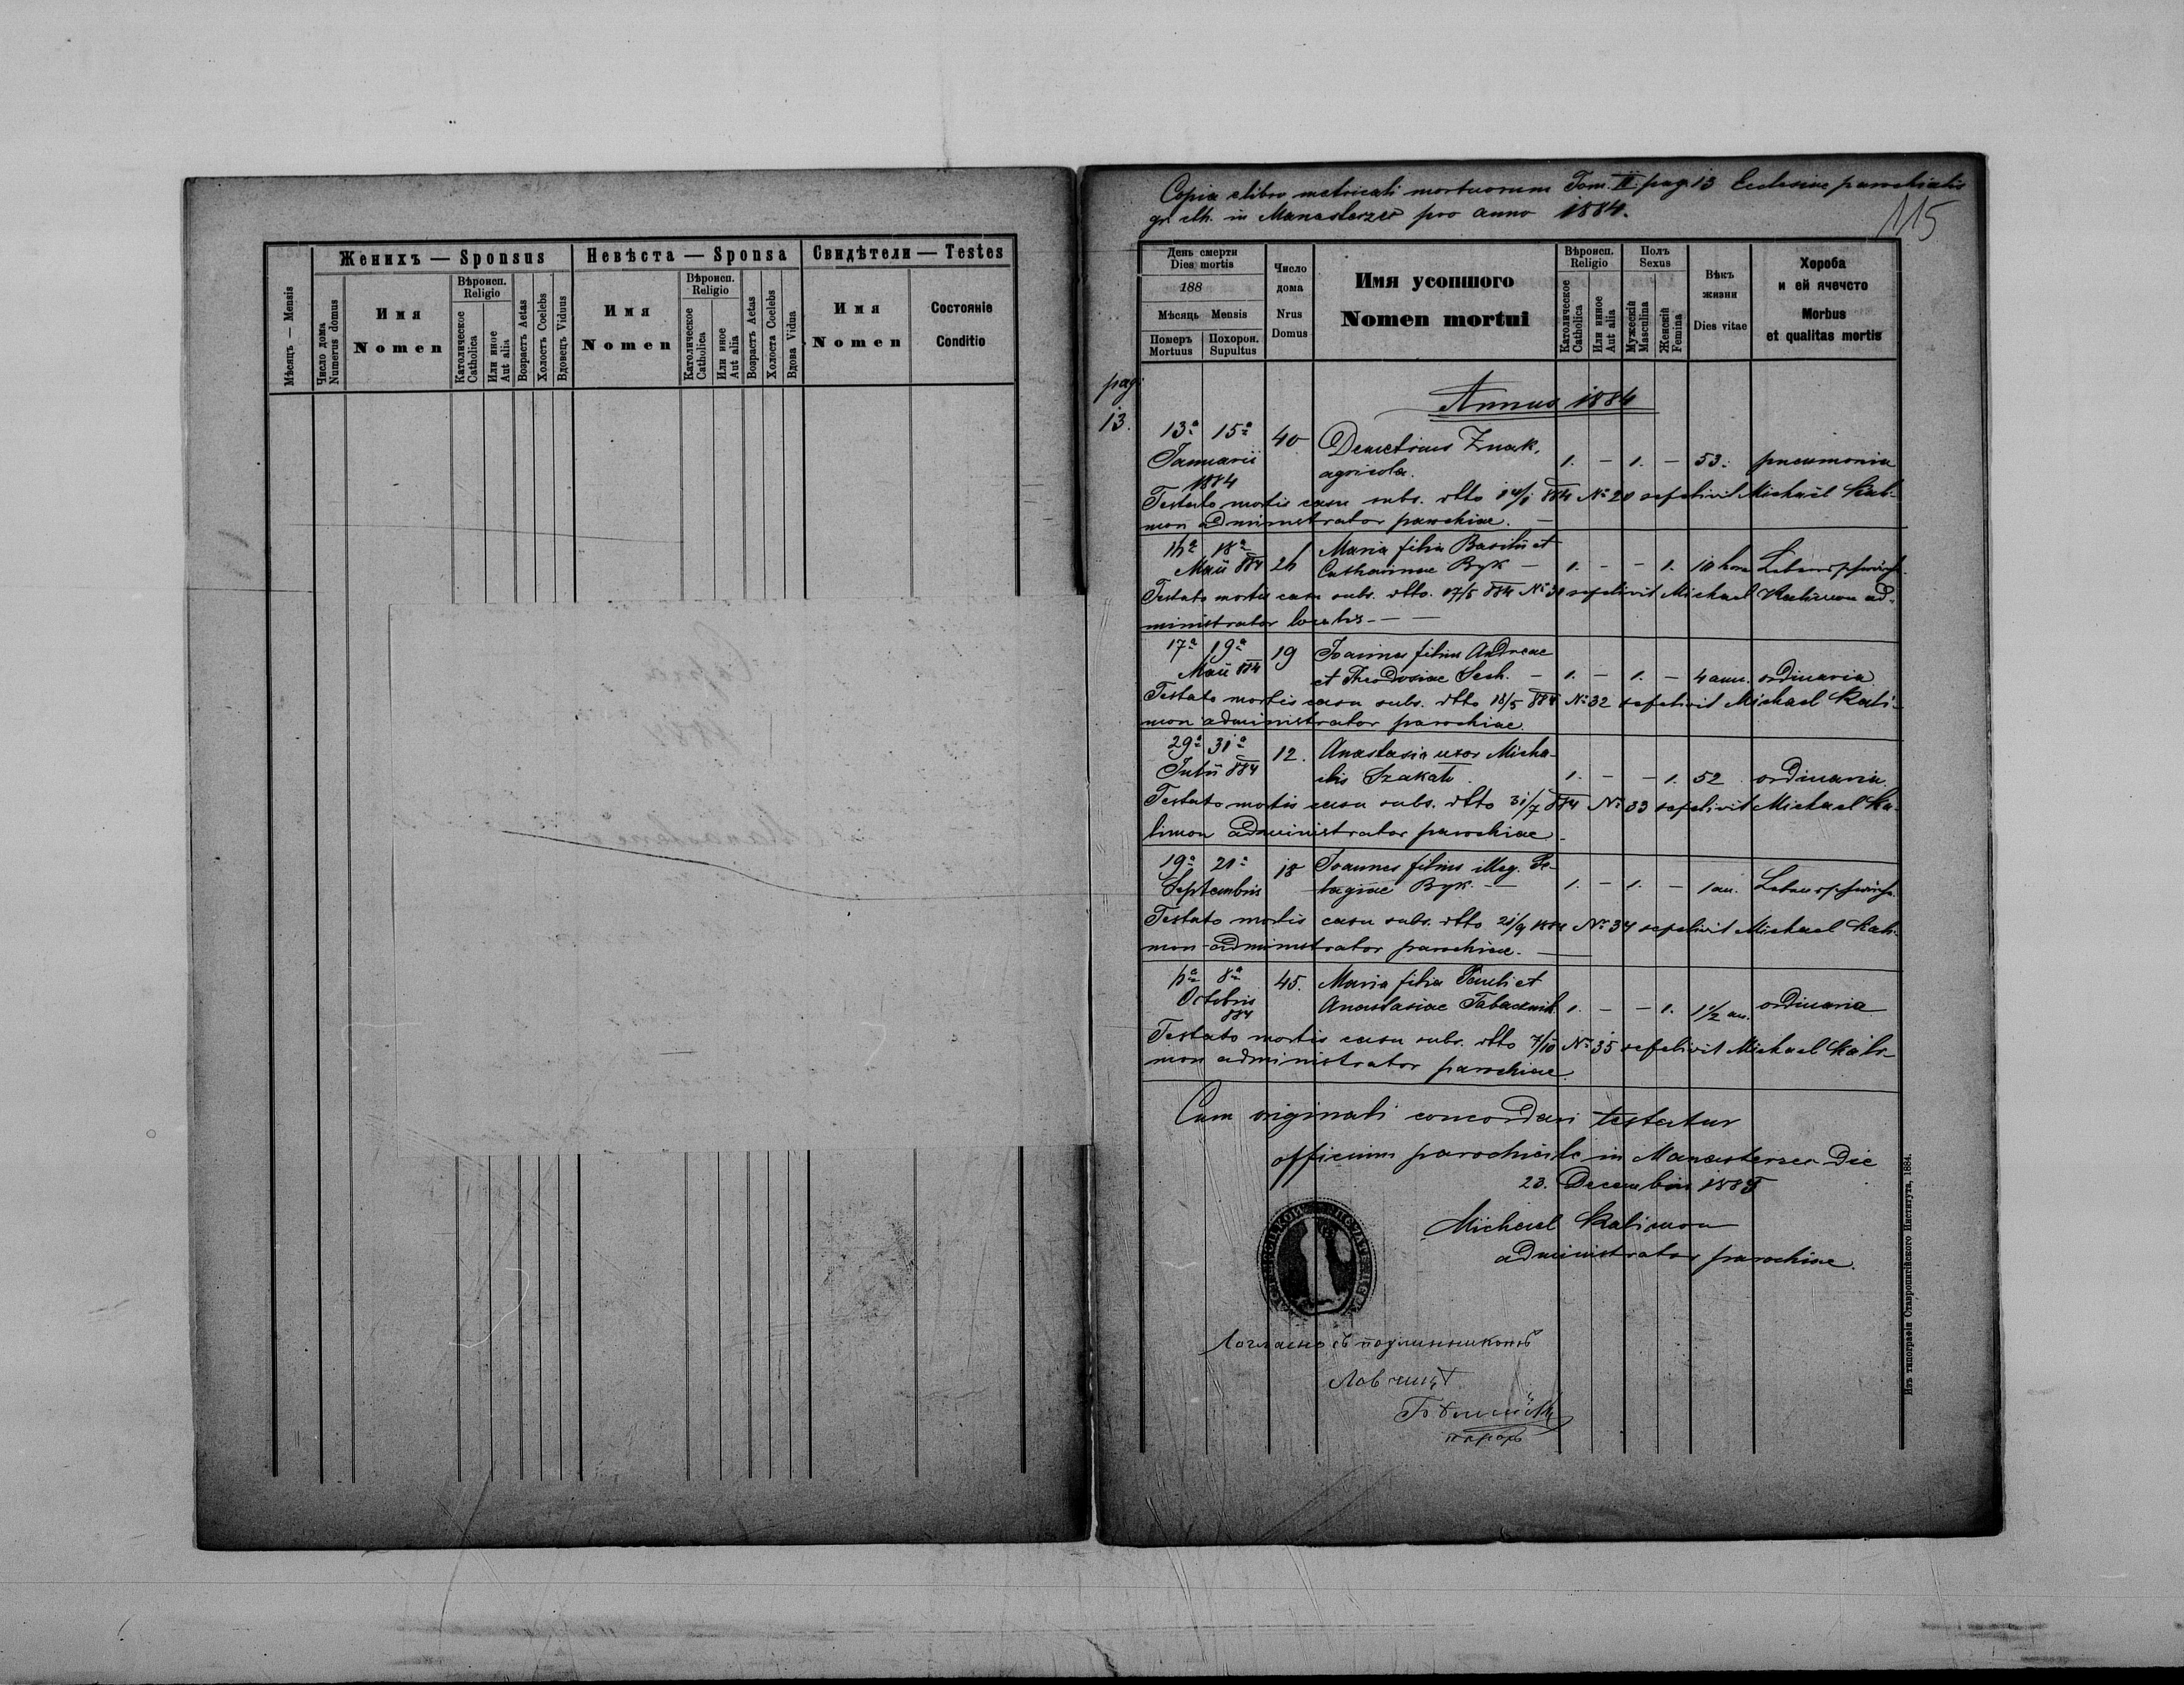 Женихъ — Sponsus
Невѣста — Sponsa
Свидѣтели — Testes
Мѣсяць — Mensis
Число дома
Numerus domus
Имя
Nomen
Вѣроисп.
Religio
Католическое
Catholica
Или иное
Aut alia
Возрастъ Aetas
Холостъ Coelebs
Вдовецъ Viduus
Имя
Nomen
Вѣроисп.
Religio
Католическое
Catholica
Или иное
Aut alia
Возрастъ Aetas
Холоста Coelebs
Вдова Vidua
Имя
Nomen
Состоянiе
Conditio
Copia e libro metricali mortuorum Tom. II. pag 13 Ecclesiae parochialis
gr. cth. in Manasterzec pro anno 1884.
115
День смерти
Dies mortis
188
Мѣсяць Mensis
Померъ
Mortuus
Похорон.
Supultus
Число
дома
Nrus
Domus
Имя усопшого
Nomen mortui
Вѣроисп.
Religio
Католическое
Catholica
Или инное
Aut alia
Полъ
Sexus
Мужескiй
Masculina
Женскiй
Femina
Вѣкъ
жизни
Dies vitae
Хороба
и ей ячечсто
Morbus
et qualitas mortis
pag:
13.
Annus 1884
13ª 15ª 40 Demetrius Znak,
Januarii agricola. 1. – 1. – 53. pneumonia
1884
Testato mortis casu subs. dtto 884 Nº 20 sepelivit Michaël Kali-
mon administrator parochiae. —
18ª Maria filia Basilii et
Maii 884 Catharinae Byk — 1. – – 1. 10 hora
Testato mortis casu subs. dtto. 17/5 884 Nº 31 sepelivit Michael Kalimon ad-
ministrator localis. — —
17ª 19ª 19 Joannes filius Andreae
Maii 884 et Theodosiae Sech. – 1. – 1. – 4 ann. ordinaria
Testato mortis casu subs. dtto 18/5 884 Nº 32 sepelivit Michael Kali-
mon administrator parochiae.
29ª 31ª 12. Anastasia uxor Micha-
Julii 884 elis Szakalu 1. – – 1. 52 ordinaria.
Testato mortis casu subs. dtto 31/7 884 Nº 33 sepelivit Michael Ka-
limon administrator parochiae.
19ª 21ª 18 Joannes filius illeg. Pe-
Septembris lagiae Byk. — 1. – 1. – 1 an.
Testato mortis casu subs. dtto 21/9 1884 Nº 34 sepelivit Michael Kali-
mon administrator parochiae. —
6ª 8ª 45. Maria filia Pauli et
Octobris Anastasiae Tabacznik 1. – – 1. 1 1/2 an. ordinaria
884
Testato mortis casu subs. dtto 7/10 Nº 35 sepelivit Michael Kali-
mon administrator parochiae.
Cum originali concordari testatur
officium parochiale in Manasterzec die
23. Decembris 1885
Michael Kalimon
administrator parochiae.
Согласно съ подлинникомъ
парох
Изъ типографiи Ставропигiйского Института, 1884.